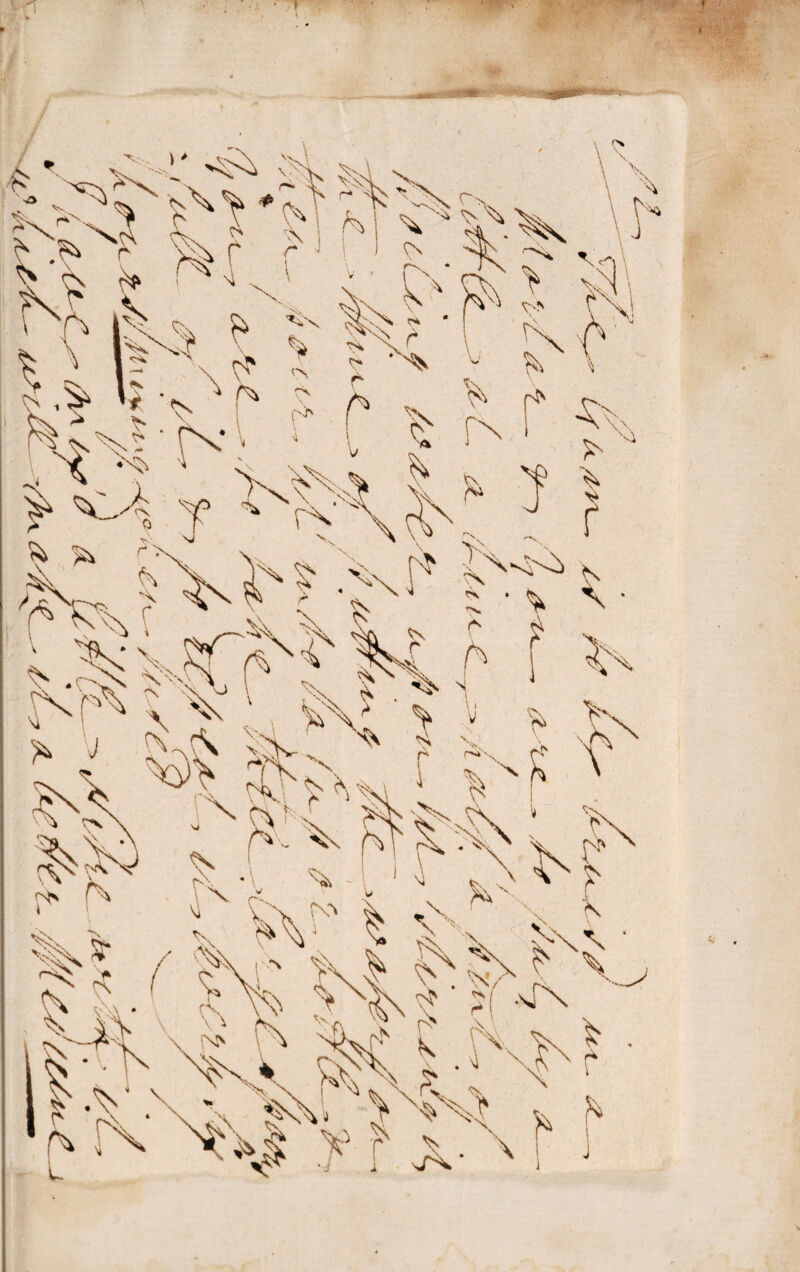 The Gum is to be bruis'd in a
Mortar & you are to put by a
little at a time, half a pint of
Boiling water upon it, stirring it
the time of putting the water on
then pour it into a Cup or bottle &
you are to take three large spoon
-fulls of it & to repeat it every six
hours mixing when used
I have mix'd a little Nitre with it
which will make it a better Medicine